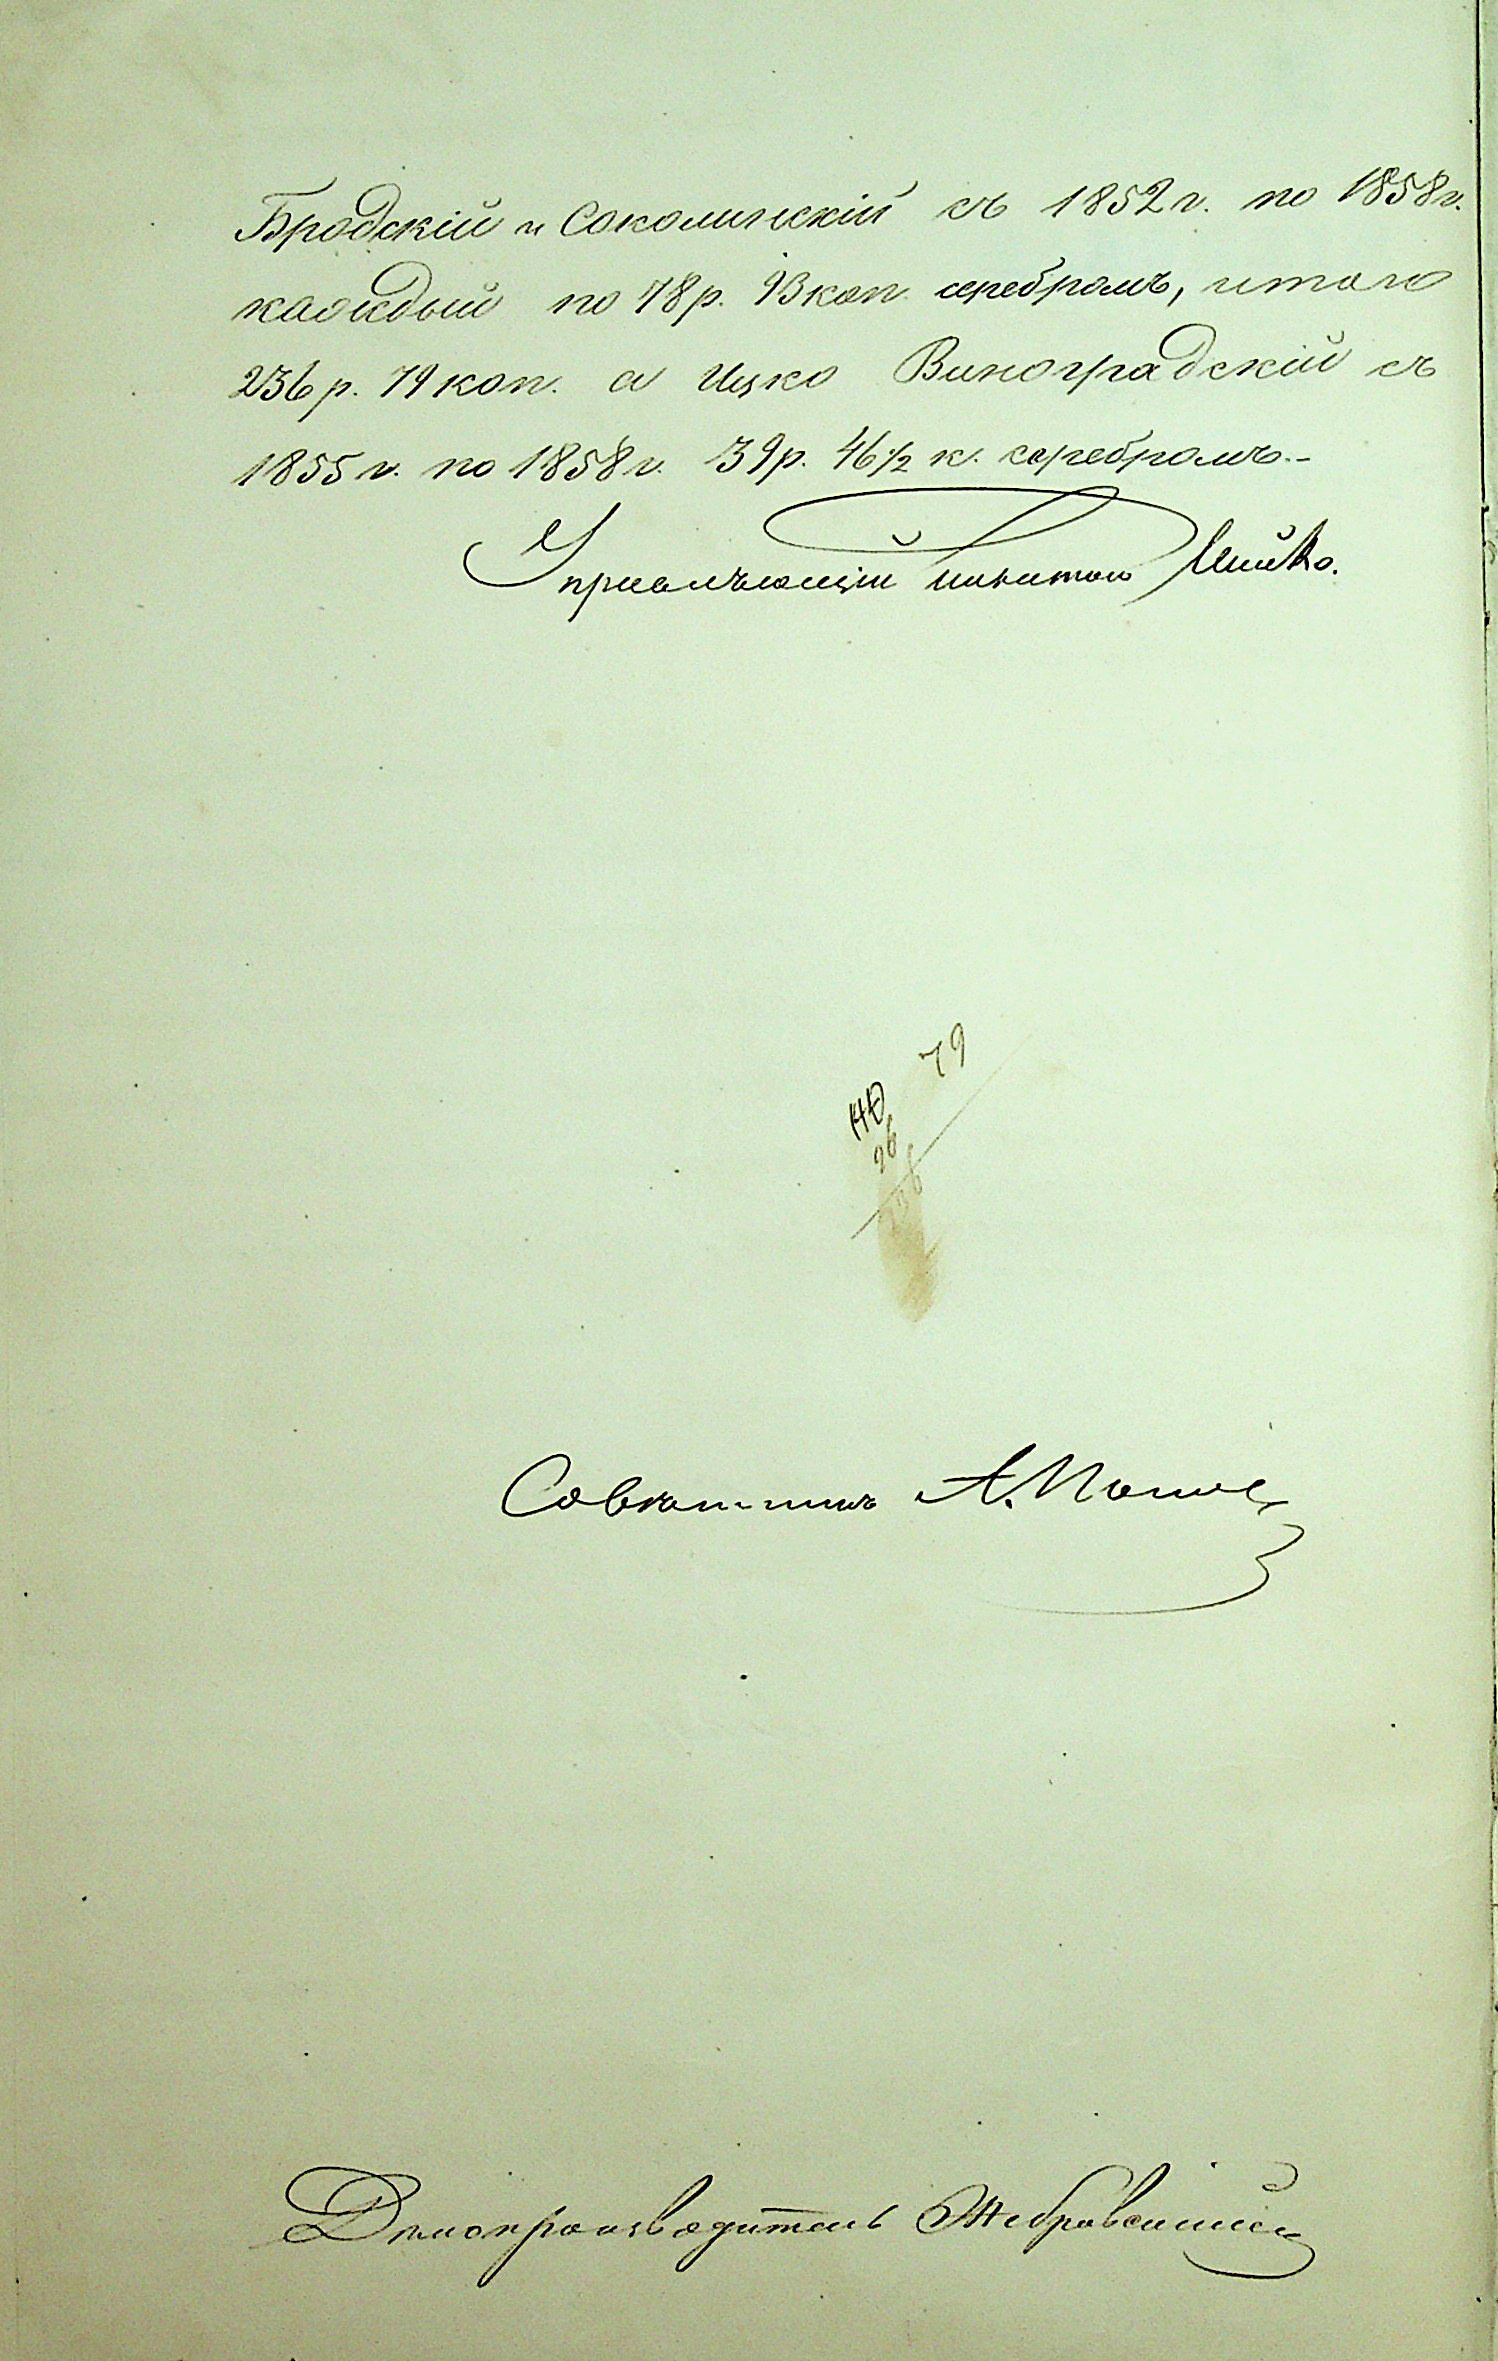 Бродскій и Соколинскій съ 1852 г. по 1858 г.
каждый по 78 р. 93 коп. серебромъ, итого
236 р. 79 коп. а Ицко Виноградскій съ
1855 г. по 1858 г. 39 р. 46 1/2 к. серебромъ.-
Управляющій
79
26
Совѣтникъ А.
Дѣлопроизводитель Жебровскій